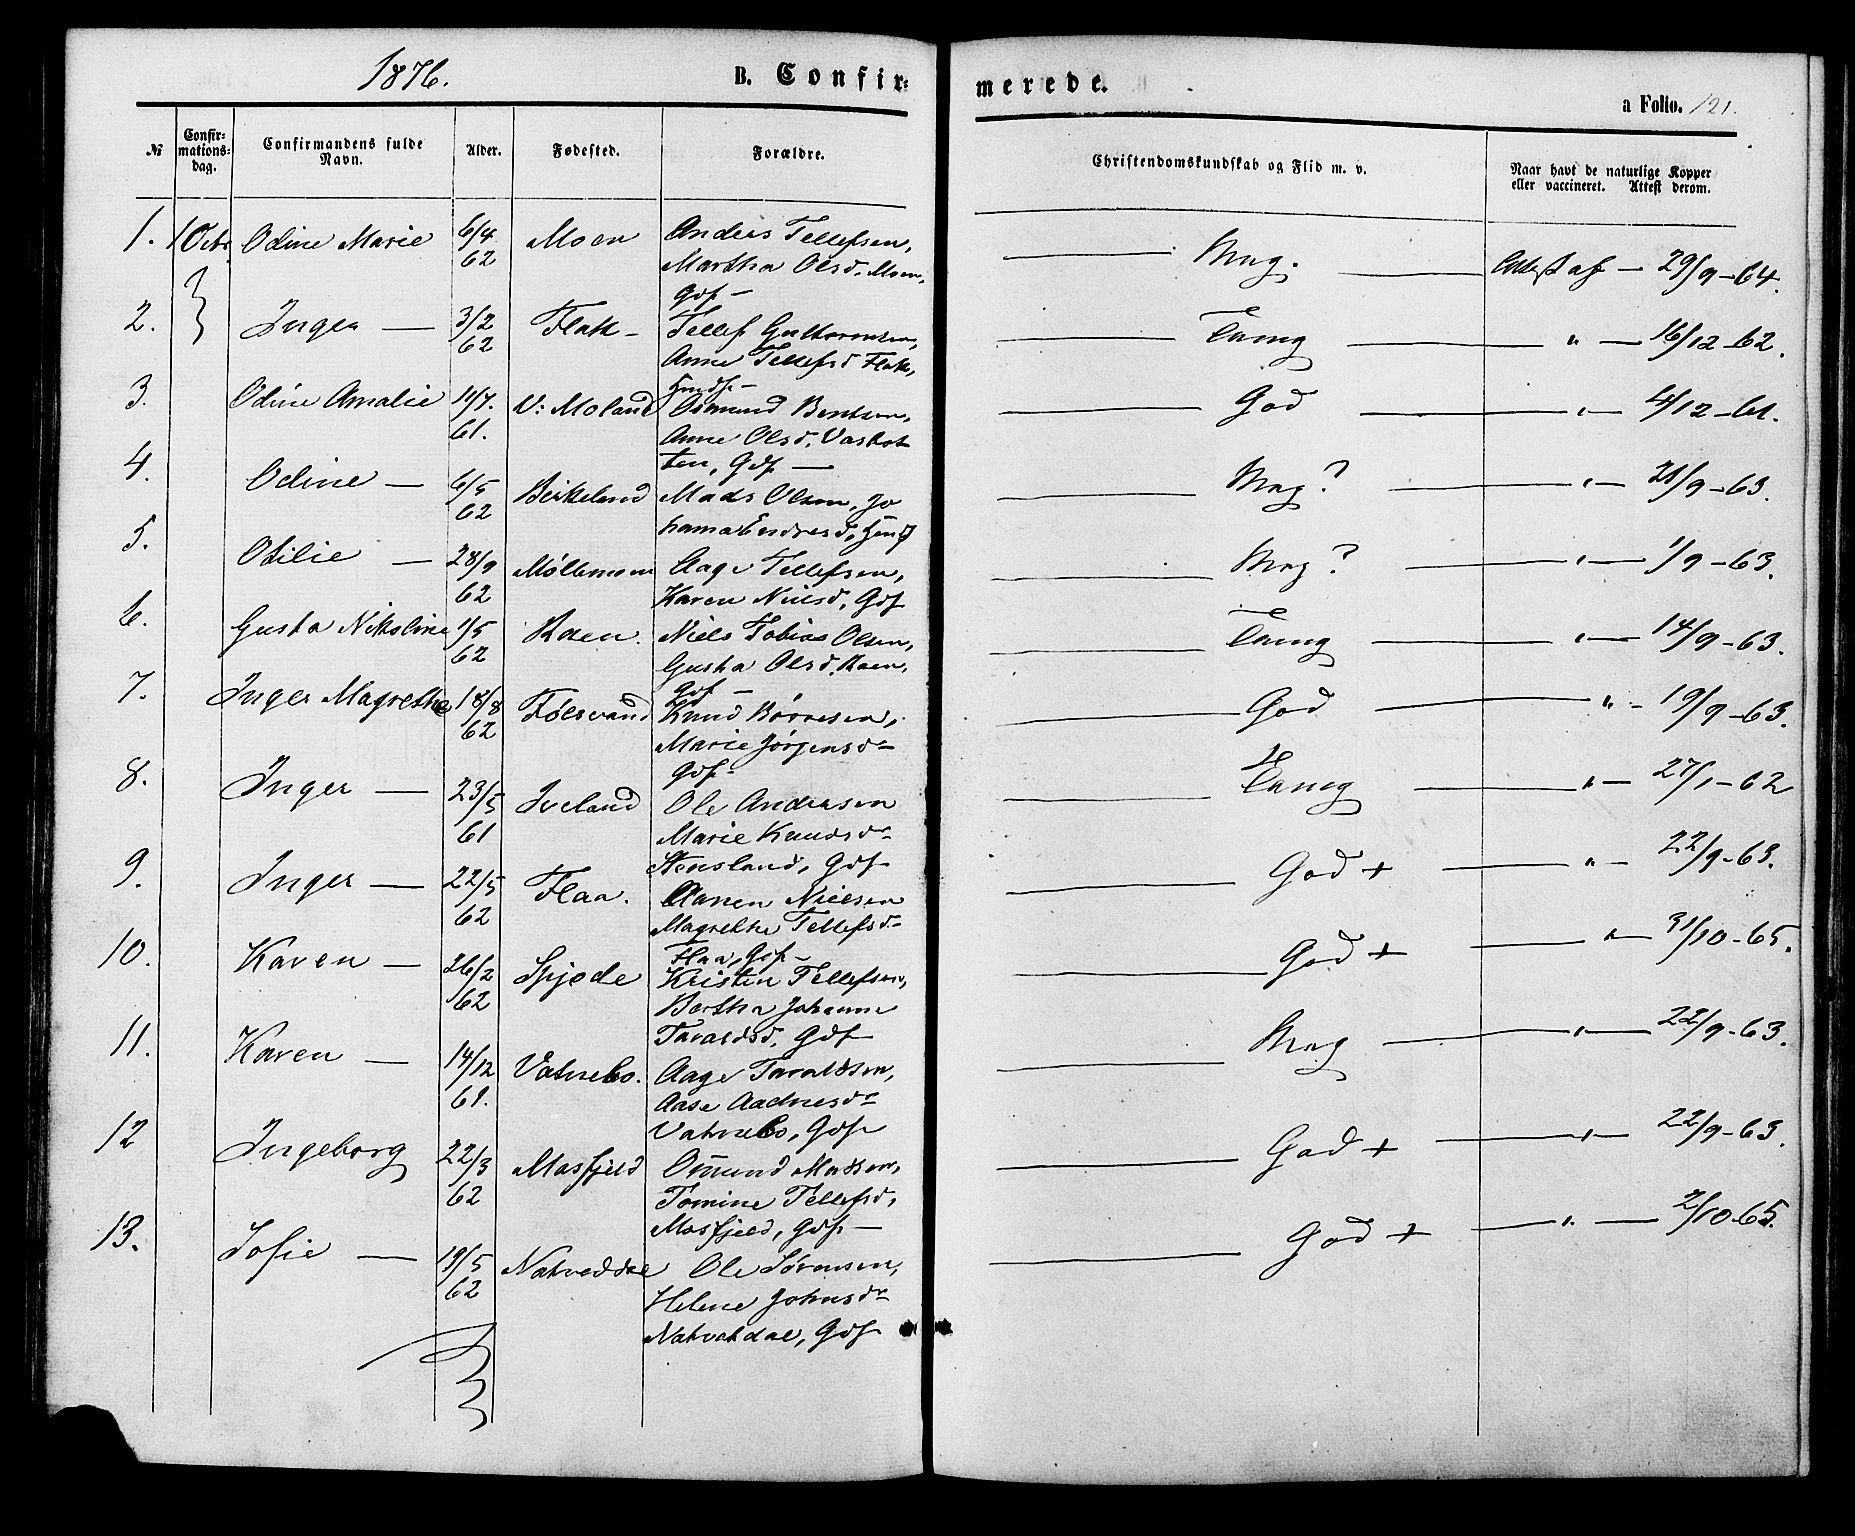 1876.
B. Confir=
merede.
a Folio. 121.
№
Confir=
mations=
dag.
Confirmandens fulde
Navn.
Alder.
Fødested.
Forældre.
Christendomskundskab og Flid m. v.
Naar havt de naturlige Kopper
eller vaccineret. Attest derom.
1. 1 Octr. Odine Marie 6/4 62 Moen Anders Tellefsen,
Martha Olsd. Moen,
Gdf — Mag. Attest af — 29/9 – 64.
2. Inger — 3/2 62 Flak — Tellef Guttormsen,
Anne Tellefsd Flak,
— Tamg " — 16/12 – 62.
3. Odine Amalie 11/7. 61. V: Moland Osmund Bentsen,
Anne Olsd.
ten, Gdf — God " — 4/12 – 61.
4. Odine — 6/5 62 Birkeland Mads Olsen, Jo
hanna Endresd, Mag? " — /9 – 63.
5. Otilie — 28/9 62 Møllemoen Aage Tellefsen,
Karen Nielsd, Gdf Mag? " — 1/9 – 63.
6. Gusta Nikoline 1/5 62 Raen. Niels Tobias Olsen,
Gusta Olsd. Raen,
Gdf — Tamg " — 14/9 – 63.
7. Inger Magrethe 18/8 62 Følesvand Knud Børresen,
Marie Jørgensdr
Gdf — God " — 19/9 – 63.
8. Inger — 23/5 61 Iveland Ole Andersen
Marie Knudsdr
Stensland, Gdf Tamg " — 27/1 – 62
9. Inger — 22/5 62 Flaa. Aanen Nielsen
Magrethe Tellefsdr
Flaa, Gdf — God + " — 22/9 – 63.
10. Karen — 26/2 62 Spjøde Kristen Tellefsen,
Bertha Johanne
Taraldsd. Gdf God + " — 31/10 – 65.
11. Karen — 14/12 61. Vatnebo. Aage Taraldsen,
Aase Aadnesdr
Vatnebo, Gdf Mag " — 22/9 – 63.
12 Ingeborg 22/3 62 Mosfjeld Omund Madsen,
Tomine Tellefsd,
Mosfjeld, Gdf — God + " — 22/9 – 63.
13. Sofie — 19/5 62 Natveddal Ole Sørensen,
Helene Johnsdr
Natvetdal, Gdf God + " — 2/10 – 65.